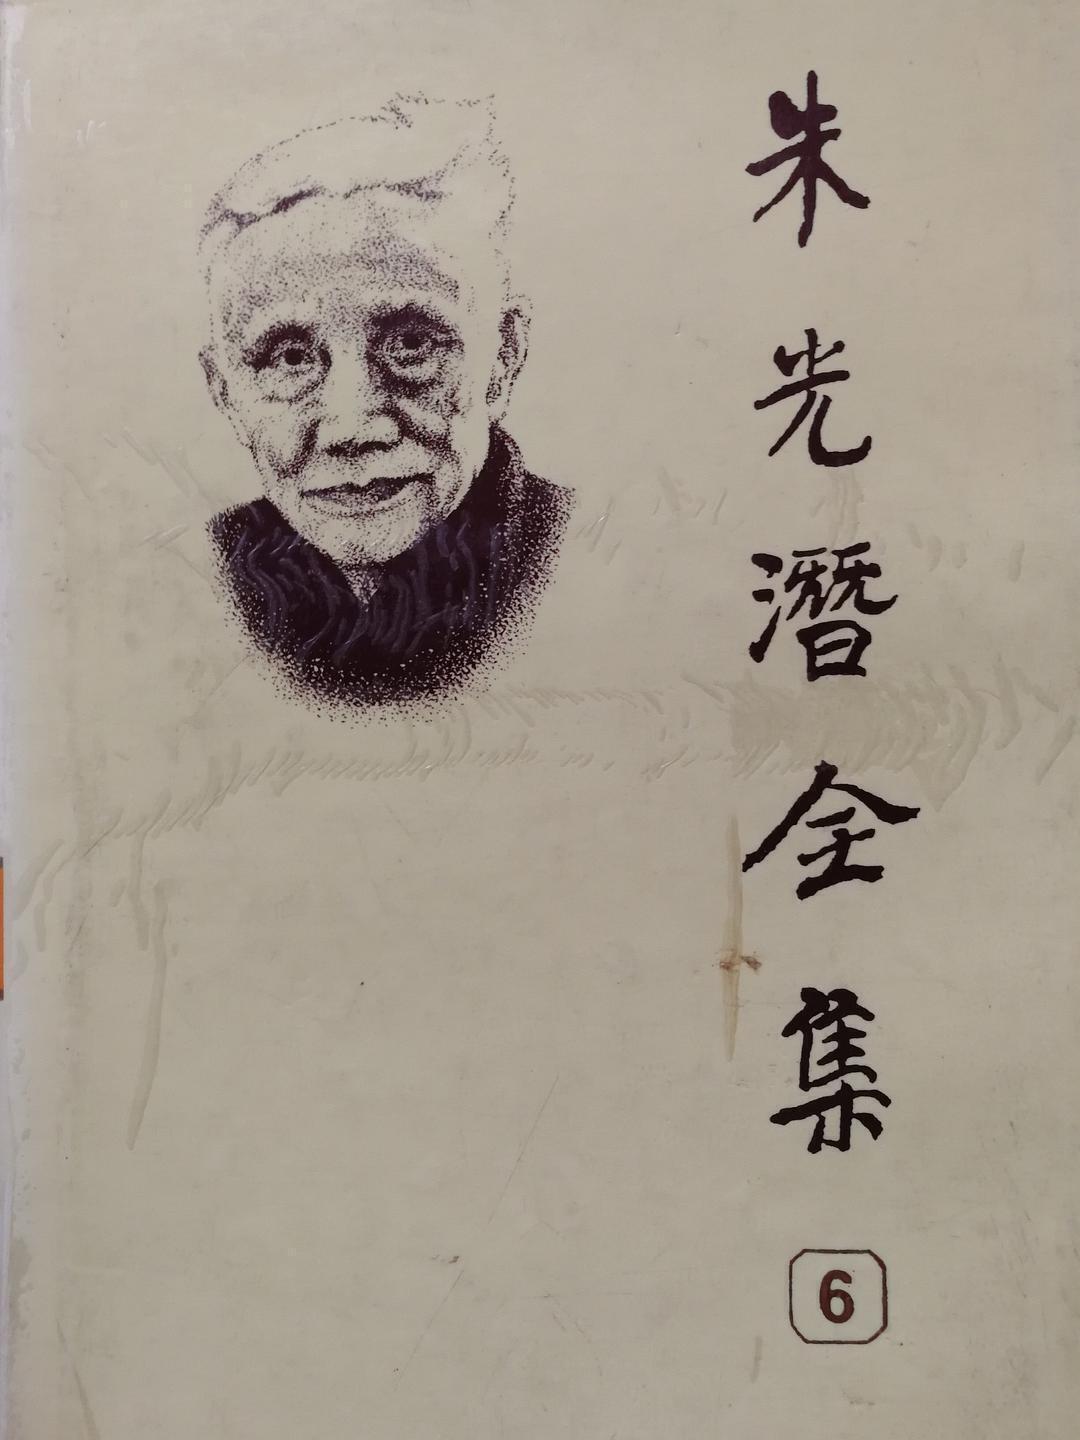 朱光潜全集
6